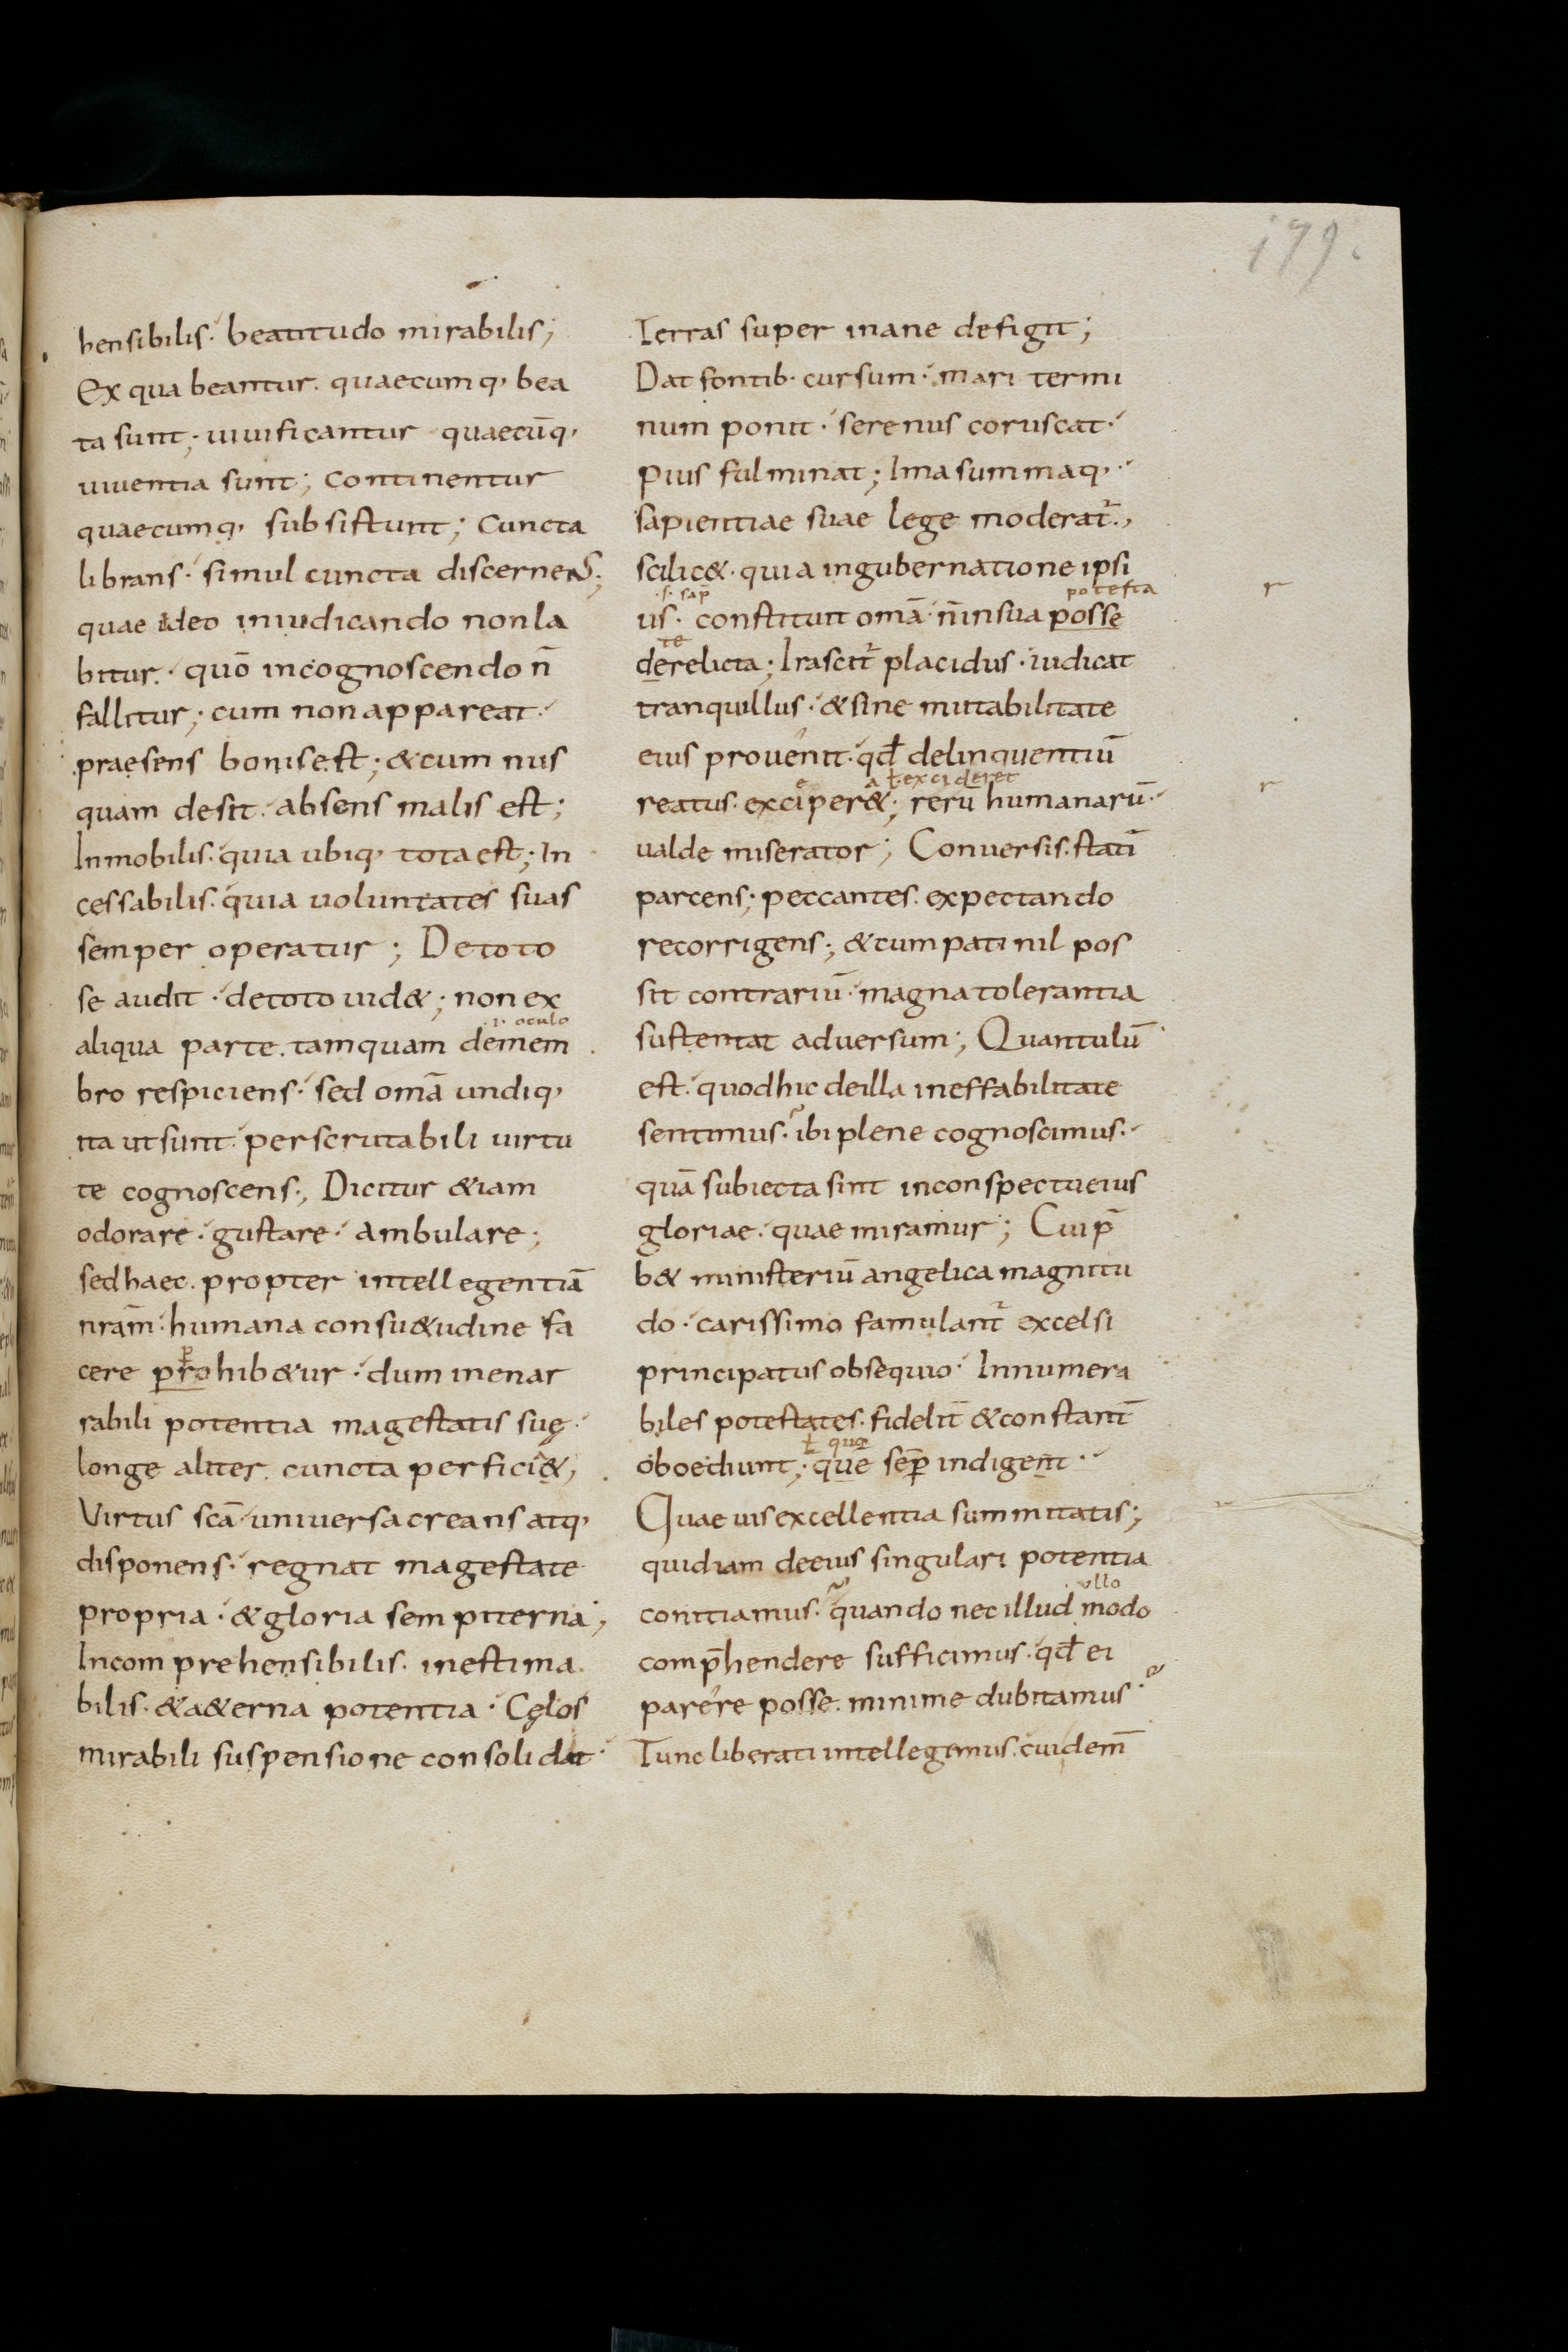 179.
hensibilis· beatitudo mirabilis;
Ex qua beantur. quaecumq, bea
ta sunt; uiuificantur quaecūq,
uiuentia sunt; continentur
quaecumq, subsistunt; cuncta
librans· simul cuncta discernens;
quae ideo iniudicando nonla
bitur· quō incognoscendo n̄
fallitur; cum nonappareat·
praesens bonisest; &cum nus
quam desit· absens malis est;
Inmobilis· quia ubiq, totaest; In
cessabilis· quia uoluntates suas
semper operatur; Detoto
se audit· detoto uid&; non ex
.i. oculo
aliqua parte. tamquam demem
bro respiciens· sed omā undiq,
ita utsunt· perscrutabili uirtu
te cognoscens; Dicitur &iam
odorare· gustare· ambulare;
sedhaec. propter intellegentiā
nrām· humana consu&udine fa
p
cere prohib&ur· dum inenar
rabili potentia magestatis suę·
longe aliter. cuncta perfici&;
Virtus scā· uniuersacreans atq,
disponens· regnat magestate
propria· &gloria sempiterna;
Incomprehensibilis. inestima
bilis· &a&erna potentia· Cęlos
mirabili suspensione consolidat·
Terras super inane defigit;
Dat fontib· cursum· mari termi
num ponit· serenus coruscat·
pius fulminat; Imasummaq,·
sapientiae suae lege moderat̄;
scilic&· quia ingubernatione ipsi
.s. sap̄ potesta
us· constituit omā· n̄insua posse
te
derelicta; Irascit̄ placidus· iudicat
tranquillus· &sine mutabilitate
eius prouenit· qđ delinquentiū
e a ł excideret
reatus· exciper&; rerū humanarū·
ualde miserator; Conuersis· statī
parcens; peccantes. expectando
recorrigens; &cumpati nil pos
sit contrariū· magnatolerantia
sustentat aduersum; Quantulū
est· quodhic deilla ineffabilitate
sentimus· ibi plene cognoscimus·
quā subiecta sint inconspectueius
gloriae· quae miramur; Cuip̄
b& ministeriū angelica magnitu
do· carissimo famulant̄ excelsi
principatus obsequio· Innumera
biles potestates· fidelit̄ &constant̄
ł quo
oboediunt; que sep̄ indigent·
Quae uisexcellentia summitatis;
quidiam deeius singulari potentia
ullo
conitiamus· quando necillud modo
comp̄hendere sufficimus· qđ ei
parere posse. minime dubitamus·
Tunc liberati intellegemus. cuidem̄
r
r